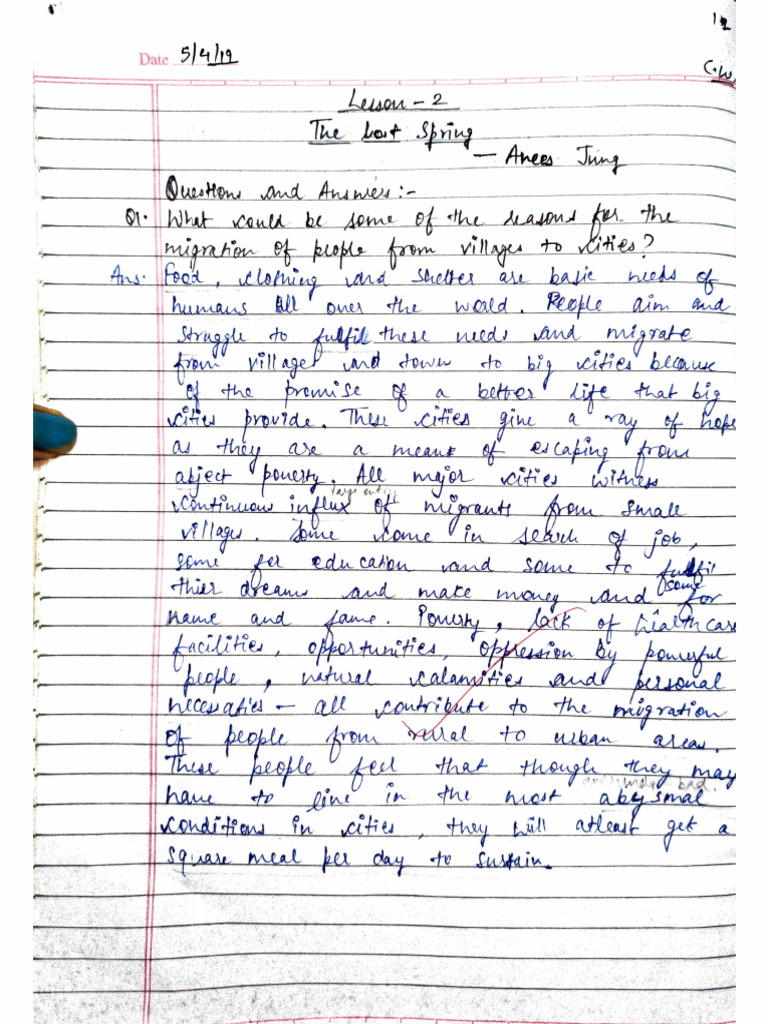 12
Date 5/4/19
C.W
Lesson - 2
The Lost Spring
- Anees Jung
Questions and Answers:-
Q1. What could be some of the reasons for the
migration of people from villages to cities?
Ans. Food, clothing and shelter are basic needs of
humans all over the world. People aim and
struggle to fulfil these needs and migrate
from villages and town to big cities because
of the promise of a better life that big
cities provide. These cities give a ray of hope
as they are a means of escaping from
abject poverty. All major cities witness
large
continuous influx of migrants from small
villages. Some come in search of job,
some for education and some to fulfil
thier dreams and make money and some for
name and fame. Poverty, lack of healthcare
facilities, opportunities, oppression by powerful
people, natural calamities and personal
necessaties - all contribute to the migration
of people from rural to urban areas.
These people feel that though they may
bad.
have to live in the most abysmal
conditions in cities, they will atleast get a
square meal per day to sustain.